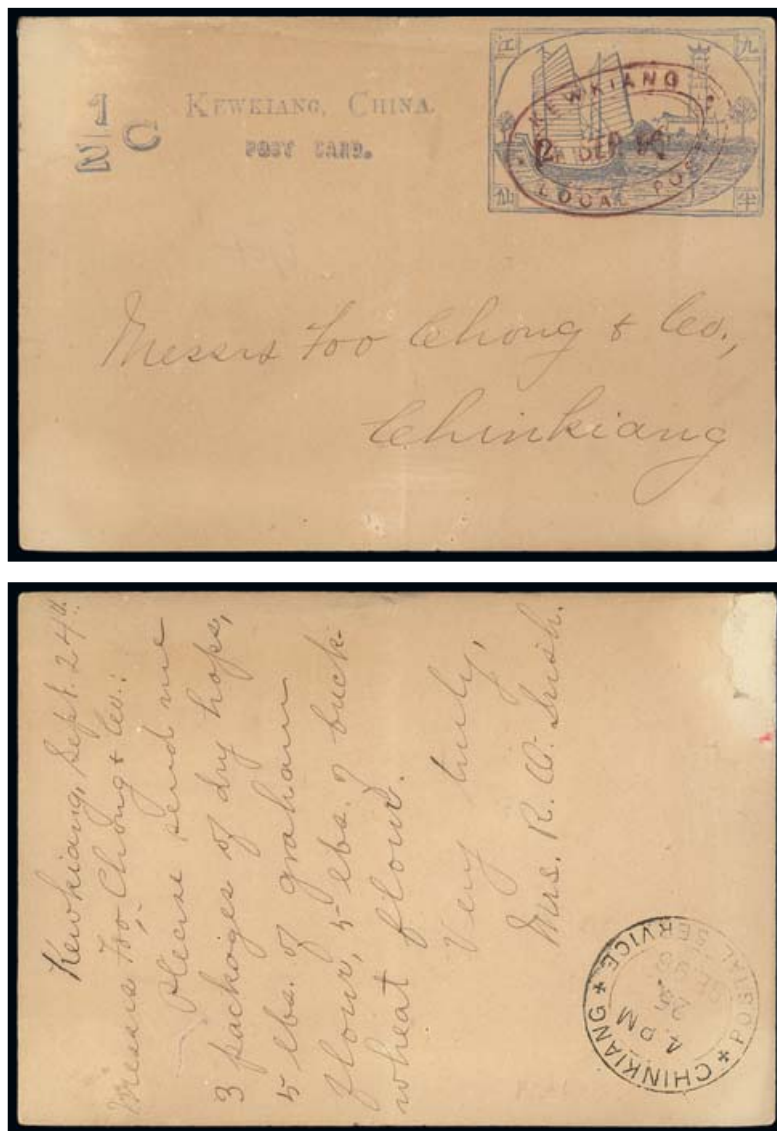 1
2 C
KEWKIANG, CHINA.
POST CARD.
江 九
仙 半
KEWKIANG
SEP
LOCAL POST
Messrs Foo Chong & Co.,
Chinkiang
Kewkiang, Sept. 24th
Messrs Foo, Chong & Co.:
Please send me
3 packages of dry hops,
5 lbs. of graham
flour, 5 lbs. of buck-
wheat flour.
Very truly,
Mrs. R. O. Irish.
CHINKIANG POSTAL SERVICE
4 PM